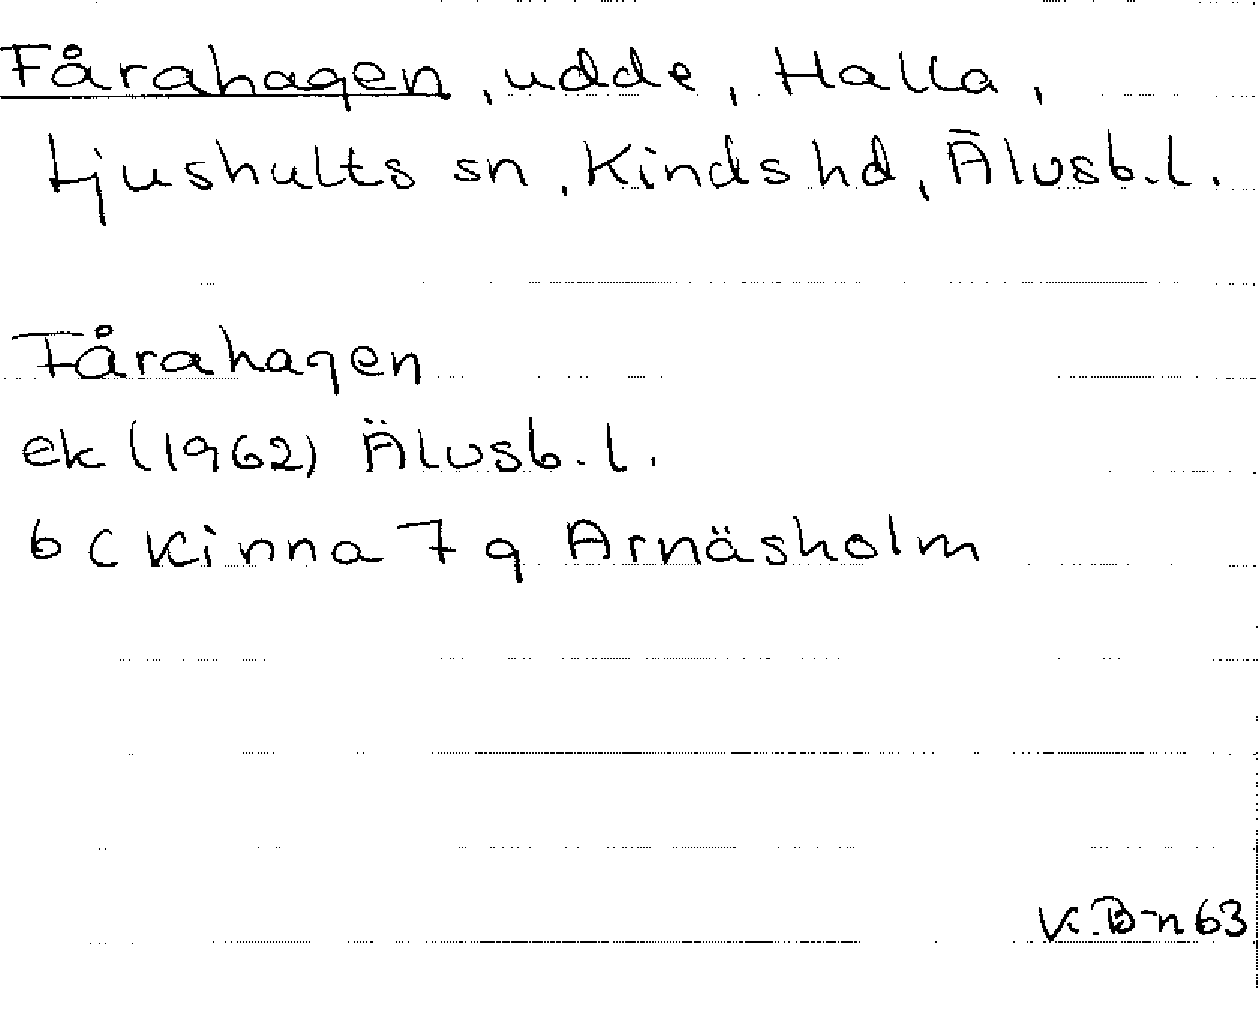 Fårahagen, udde, Halla,
Ljushults sn, Kinds hd, Älvsb. l.
Fårahagen
ek (1962) Älvsb. l.
6 C Kinna 7 g Arnäsholm
K.B-n 63